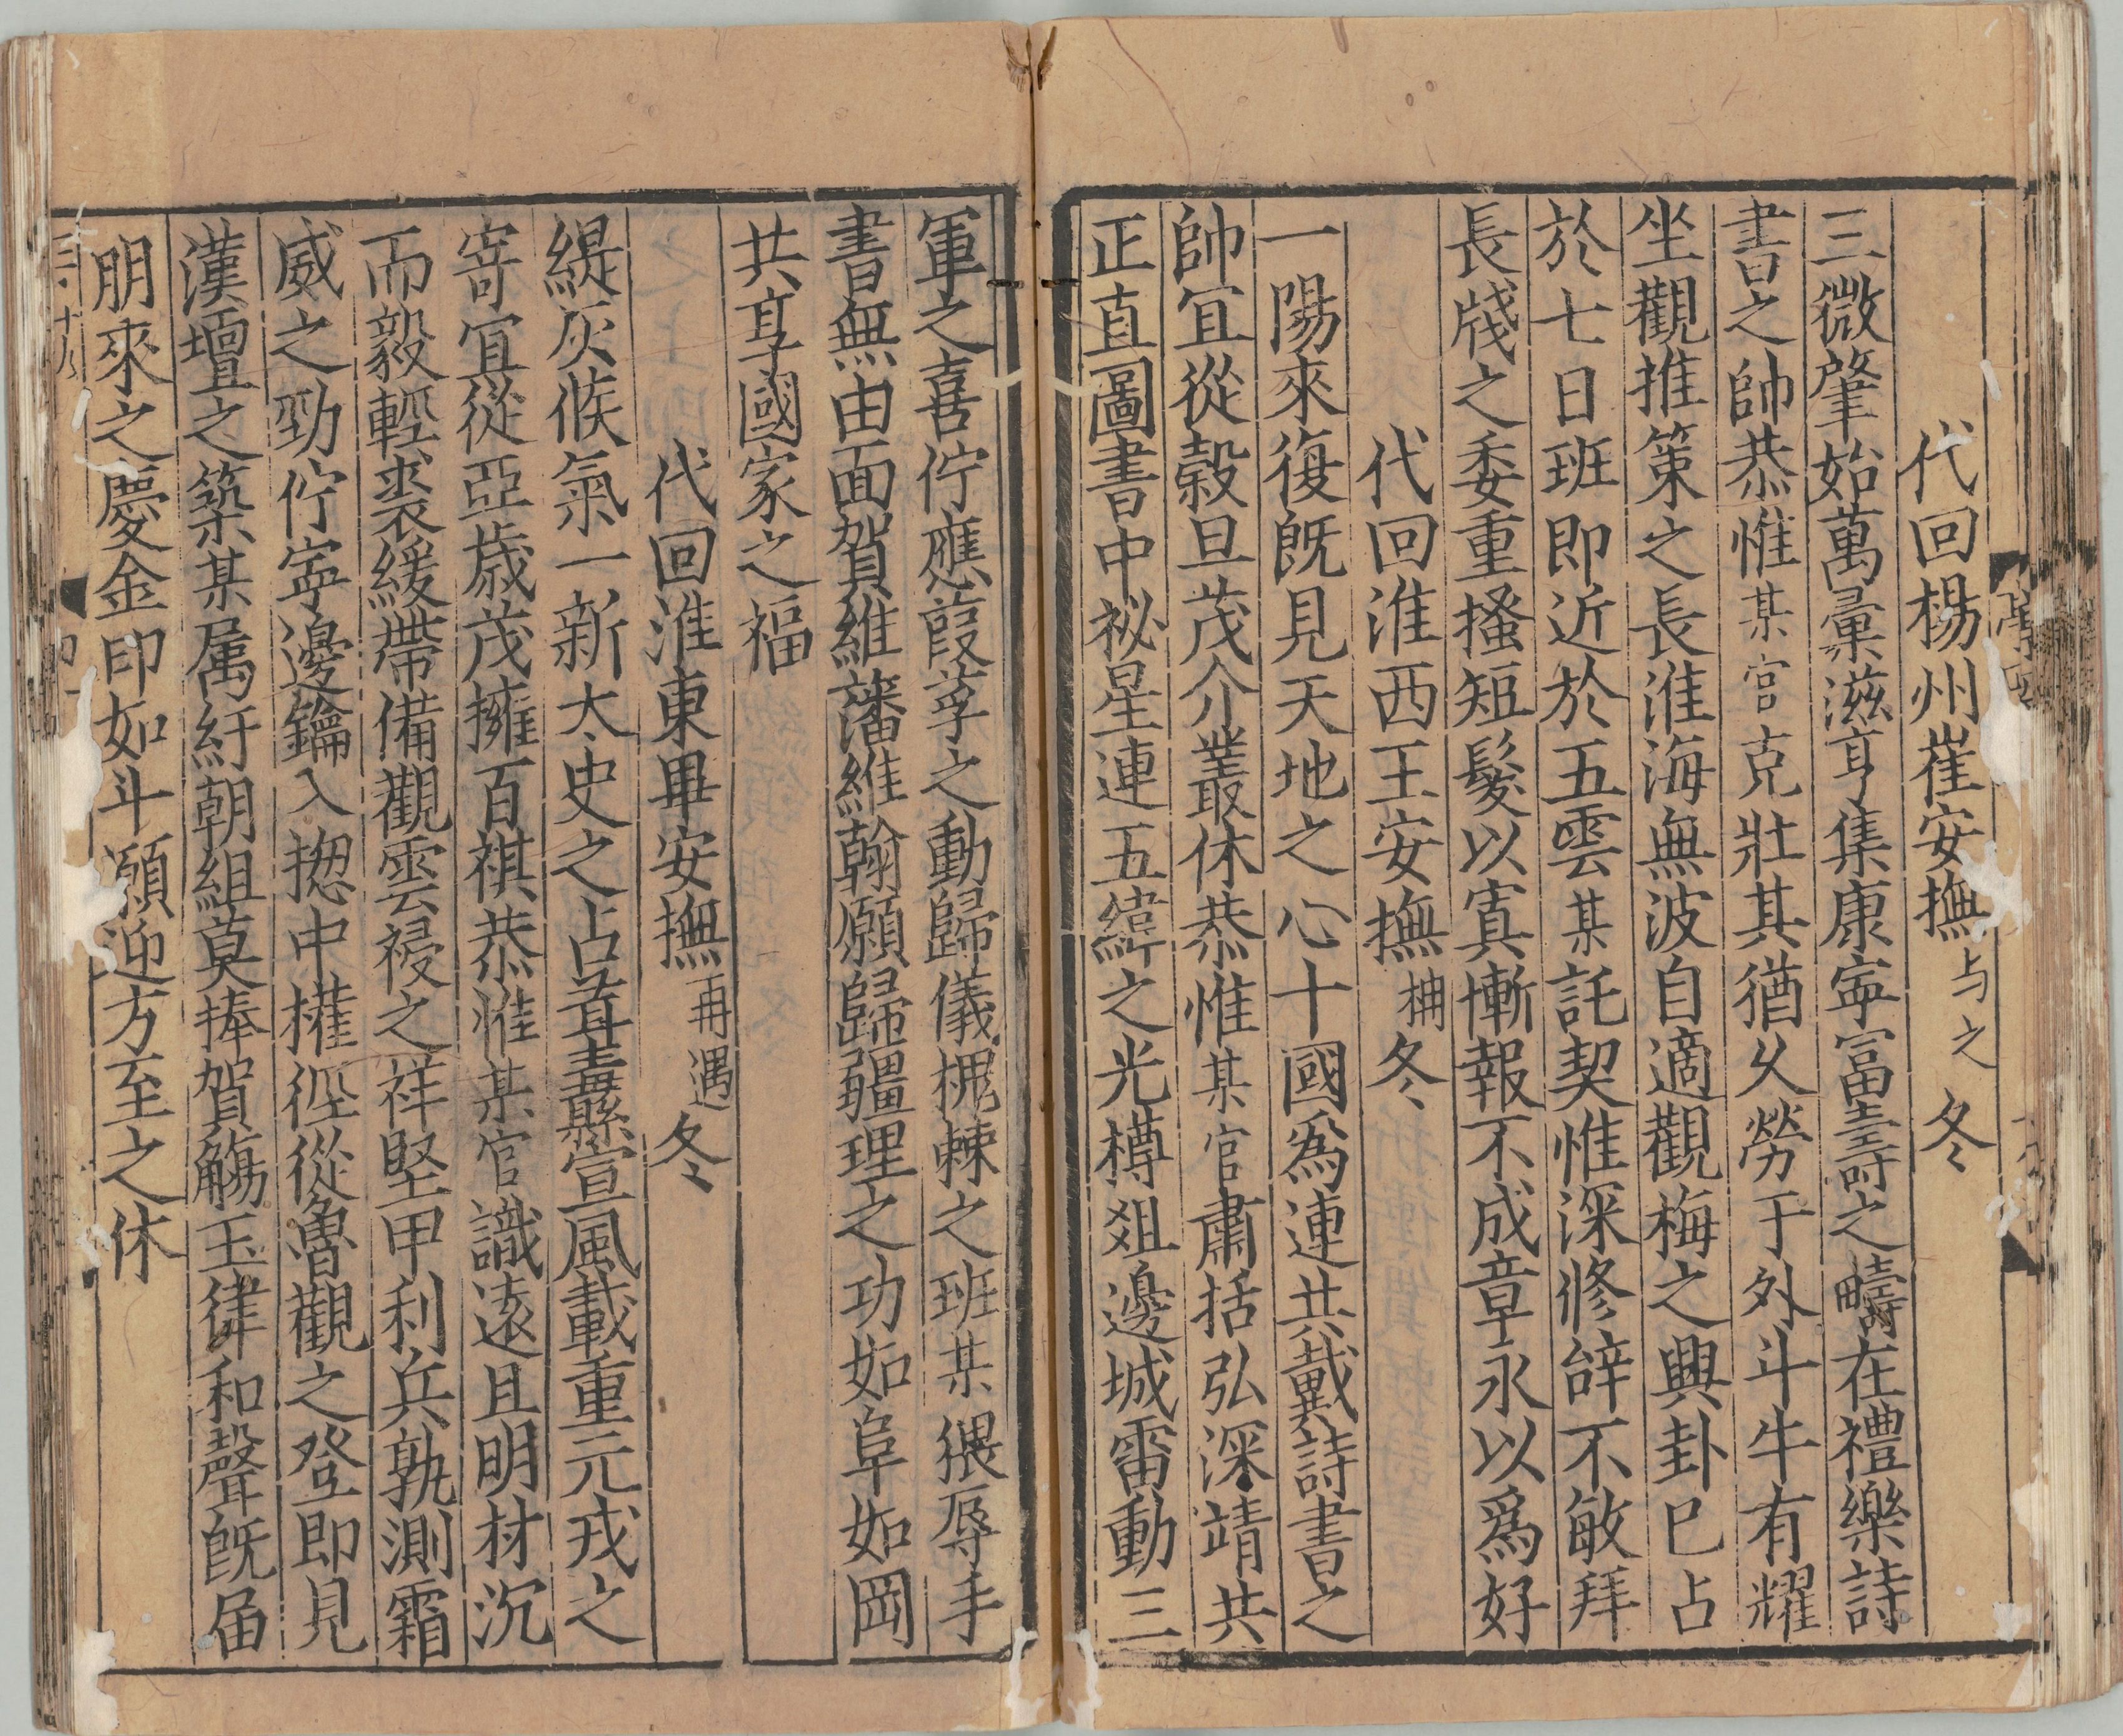 代回楊州崔安撫与之 冬
三微肇始萬彙滋亨集康寧富壽之疇在禮樂詩
書之帥恭惟某官克壯其猶久勞于外斗牛有耀
坐觀推策之長淮海無波自適觀梅之興卦已占
於七日班即近於五雲某託契惟深修辝不敏拜
長牋之委重搔短髮以寘慚報不成章永以爲好
代回淮西王安撫枏冬
一陽來復既見天地之心十國爲連共戴詩書之
帥宜從穀旦茂介叢休恭惟某官肅括弘深靖共
正直圖書中祕星連五緯之光樽俎邊城雷動三
軍之喜佇應葭莩之動歸儀槐棘之班某猥辱手
書無由面賀維藩維翰願歸疆理之功如阜如岡
共享國家之福
代回淮東畢安撫再遇冬
緹灰候氣一新太史之占葺纛縣宣風載重元戎之
寄宜從亞歲茂擁百祺恭惟某官識遠且明材沉
而毅輕裘緩帶備觀雲祲之祥堅甲利兵孰測霜
威之勁佇寧邊鑰入摠中權徑從魯觀之登即見
漢壇之築某属紆朝組莫捧賀觴玉律和聲既届
朋來之慶金印如斗願迎方至之休